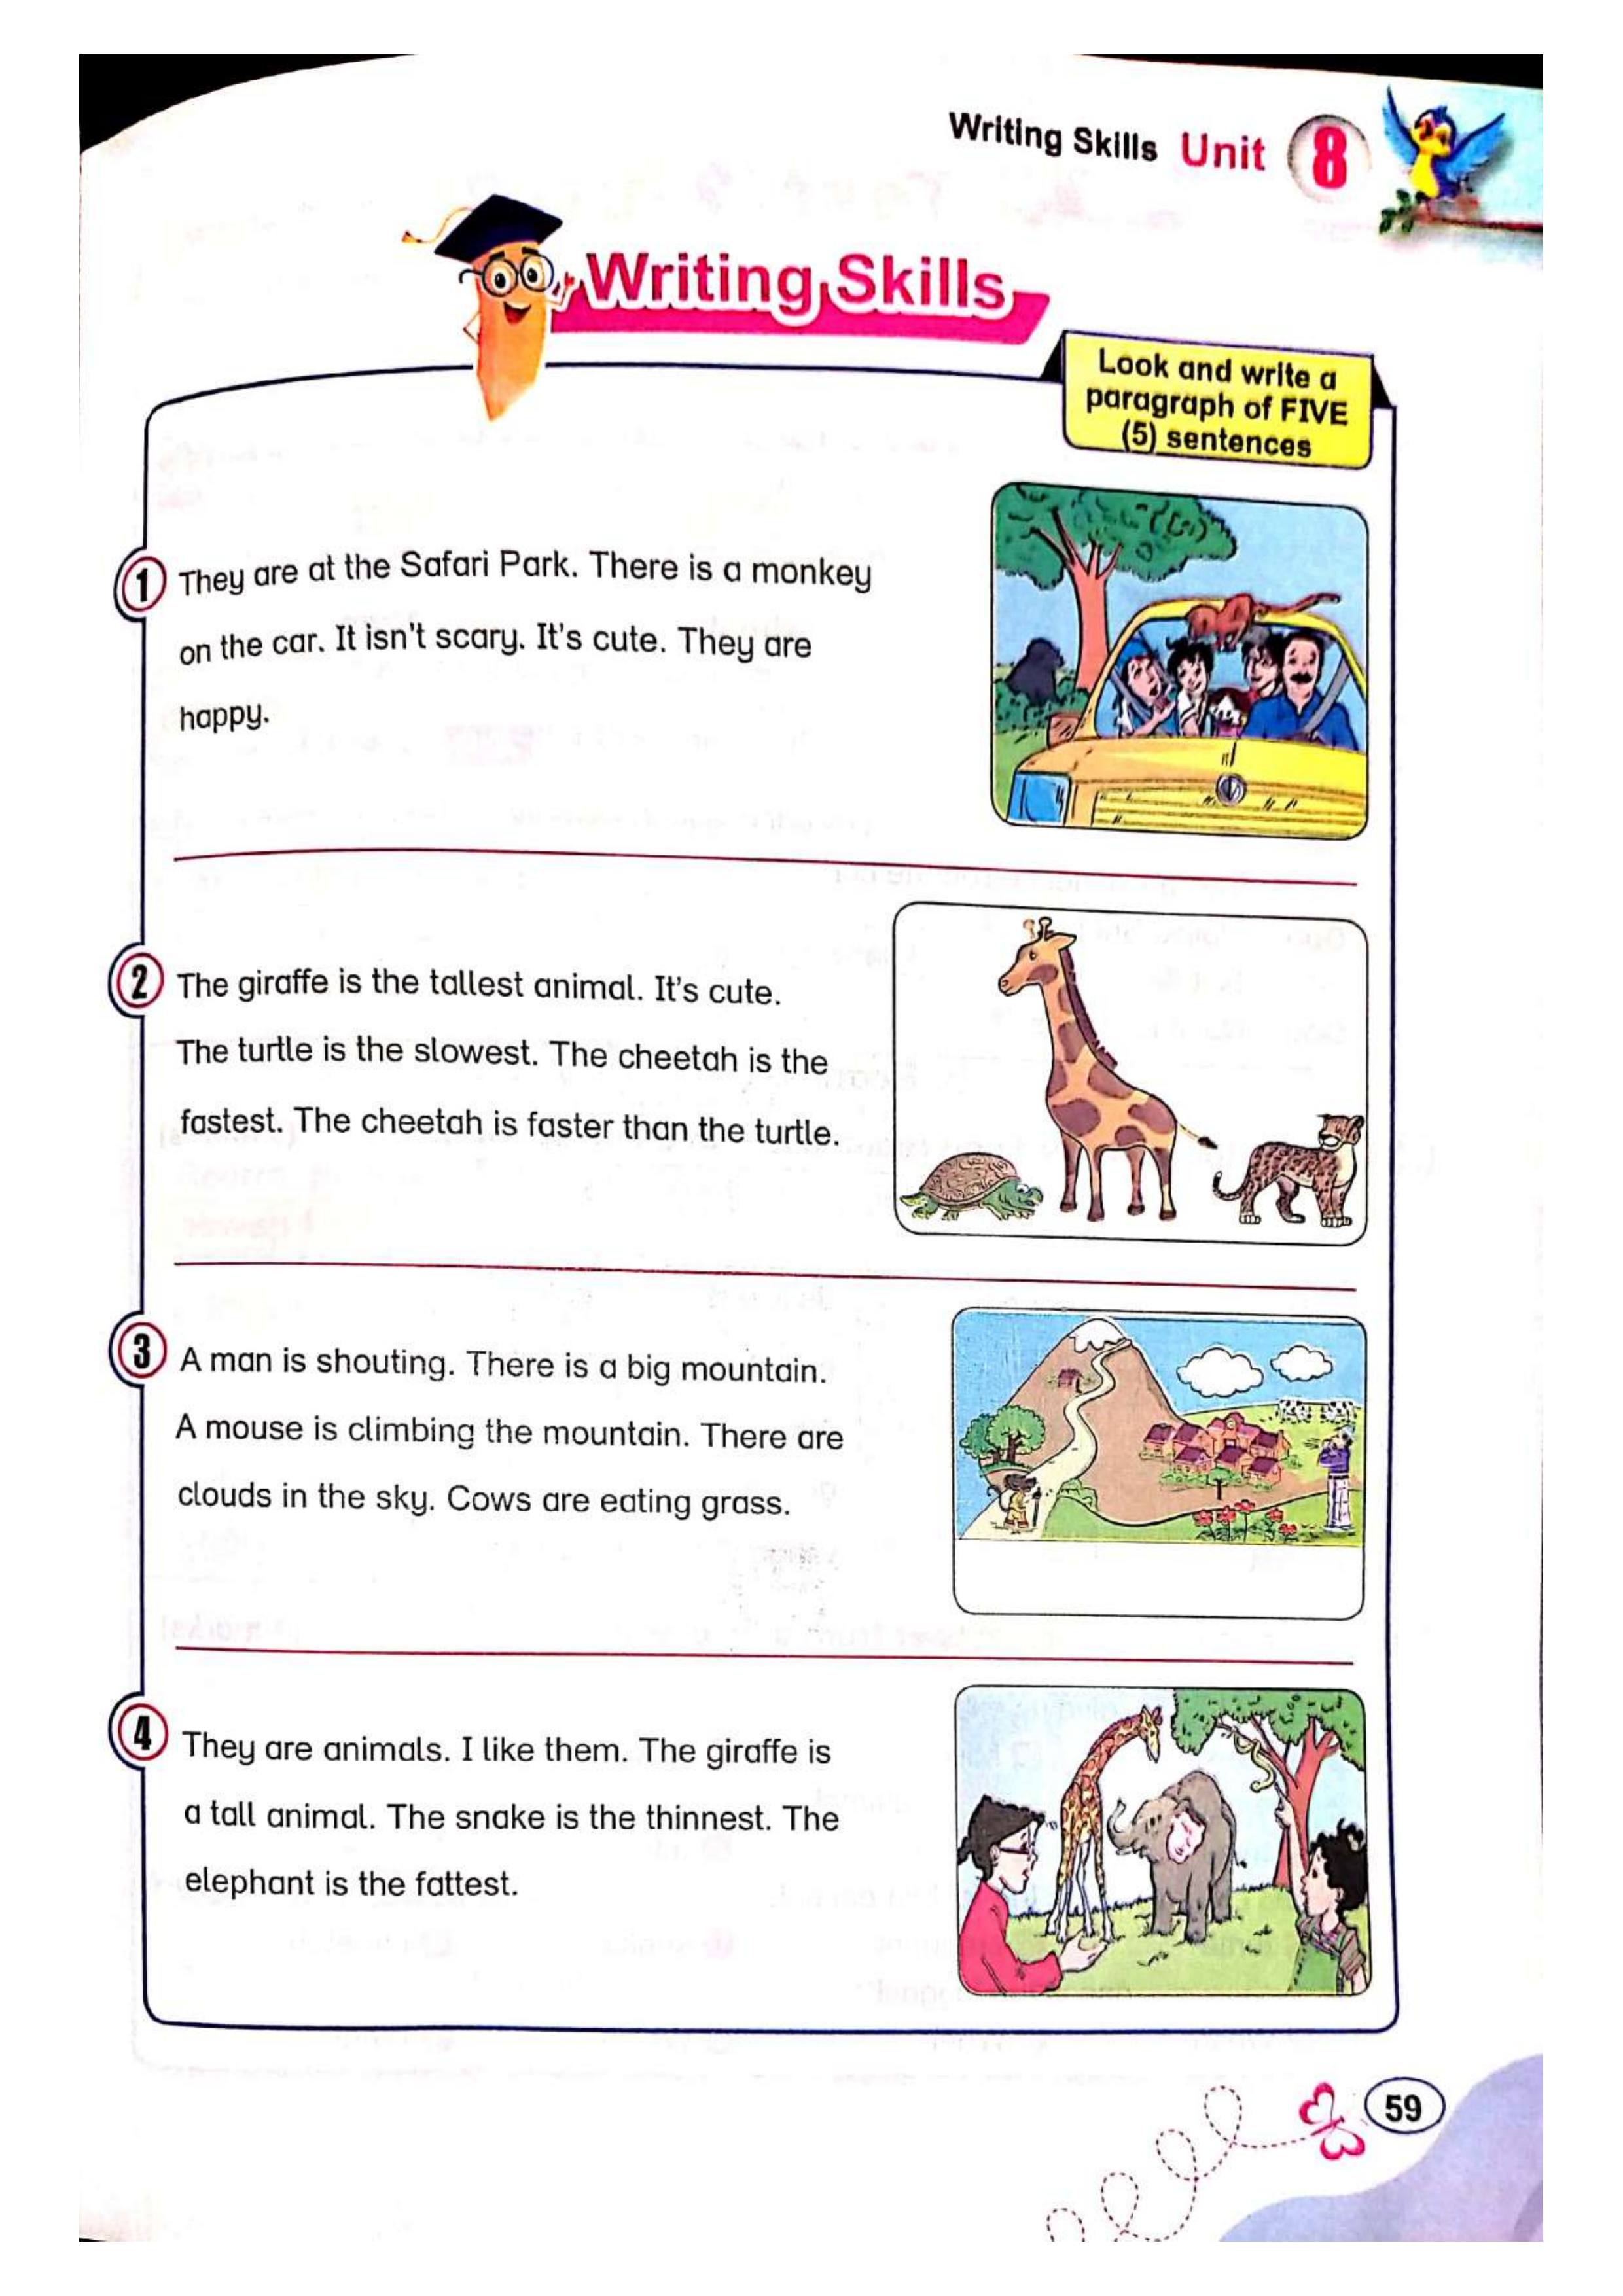 Writing Skills Unit 8
Writing Skills
Look and write a
paragraph of FIVE
(5) sentences
1 They are at the Safari Park. There is a monkey
on the car. It isn't scary. It's cute. They are
happy.
2 The giraffe is the tallest animal. It's cute.
The turtle is the slowest. The cheetah is the
fastest. The cheetah is faster than the turtle.
3 A man is shouting. There is a big mountain.
A mouse is climbing the mountain. There are
clouds in the sky. Cows are eating grass.
4 They are animals. I like them. The giraffe is
a tall animal. The snake is the thinnest. The
elephant is the fattest.
59